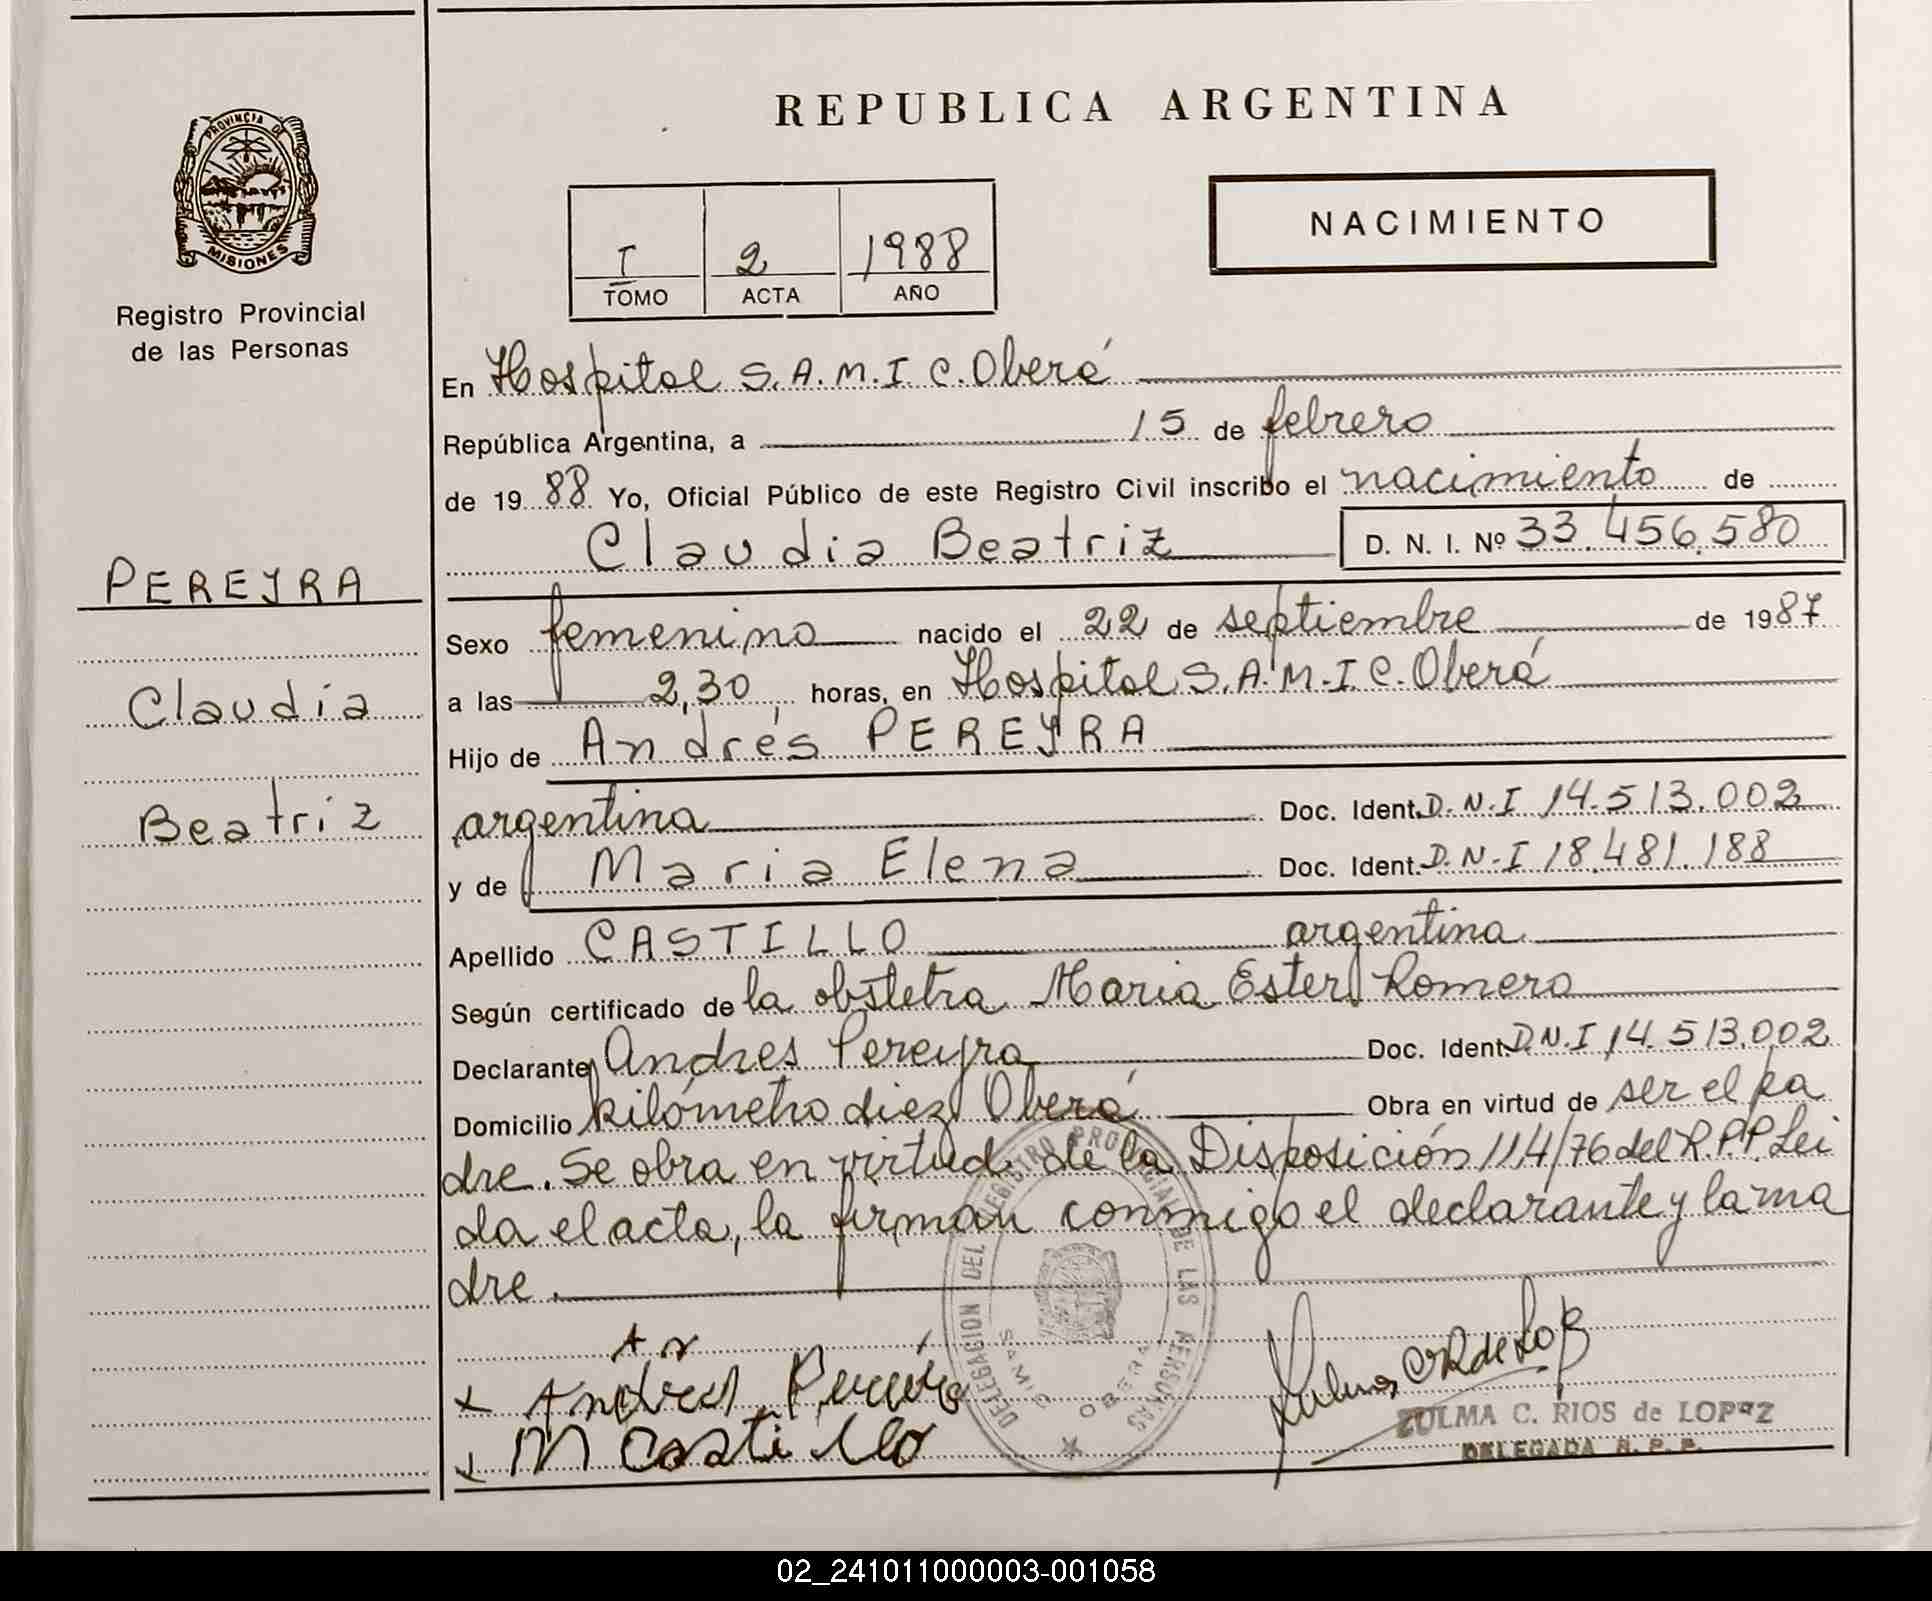 REPUBLICA ARGENTINA
PROVINCIA DE
MISIONES
Registro Provincial
de las Personas
NACIMIENTO
I 2 1988
TOMO ACTA AÑO
En Hospital S.A.M.I.C. Oberá
República Argentina, a 15 de febrero
de 1988 Yo, Oficial Público de este Registro Civil inscribo el nacimiento de
Claudia Beatriz D. N. I. Nº 33.456.580
PEREYRA
Claudia
Beatriz
Sexo femenino nacido el 22 de septiembre de 1987
a las 2,30 horas, en Hospital S.A.M.I.C. Oberá
Hijo de Andrés PEREYRA
argentina Doc. Ident. D.N.I 14.513.002
y de Maria Elena Doc. Ident. D.N.I 18.481.188
Apellido CASTILLO argentina
Según certificado de la obstetra Maria Ester Romero
Declarante Andres Pereyra Doc. Ident. D.N.I 14.513.002
Domicilio kilómetro diez Oberá Obra en virtud de ser el pa
dre. Se obra en virtud de la Disposición 114/76 del R.P.P. Lei
da el acta, la firman conmigo el declarante y la ma
dre.
DELEGACION DEL REGISTRO PROVINCIAL DE LAS PERSONAS
SAMIC OBERA
x Andres Pereyra
x M Castillo
ZULMA C. RIOS de LOPEZ
DELEGADA R. P. P.
02_241011000003-001058